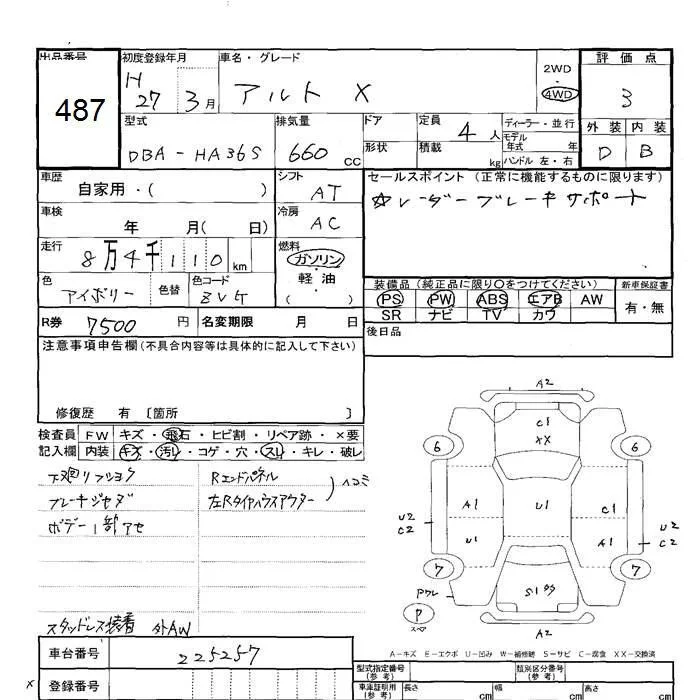 出品番号 487
初度登録年月 H 27 3月
車名・グレード アルト X
2WD
4WD
評価点 3
外装 内装
D B
型式 DBA-HA36S
排気量 660 cc
ドア
形状
定員 4 人
積載 kg
ディーラー・並行
モデル年式 年
ハンドル 左・右
車歴 自家用・( )
シフト AT
車検 年 月( 日)
冷房 AC
走行 8万4千110 km
燃料 ガソリン
軽・油
( )
色 アイボリー 色替 色コード ZVG
R券 7500 円 名変期限 月 日
セールスポイント (正常に機能するものに限ります)
☆レーダーブレーキサポート
装備品 (純正品に限り○をつけてください)
PS PW ABS エアB AW
SR ナビ TV カワ
新車保証書
有・無
後日品
注意事項申告欄 (不具合内容等は具体的に記入して下さい)
修復歴 有 〔箇所 〕
検査員 FW キズ・飛石・ヒビ割・リペア跡・×要
記入欄 内装 キズ・汚レ・コゲ・穴・スレ・キレ・破レ
下廻リフショク
ブレーキジセダ
ボデー1部アセ
Rエンドパネル
左Rタイヤハウスアウター
ヘコミ
スタッドレス装着 外AW
A2
C1
XX
6 6
A1 U1 C1
U1 A1
U2
C2
U2
C2
7 7
S1
P
スペア
A2
A-キズ E-エクボ U-凹み W-補修跡 S-サビ C-腐食 XX-交換済
車台番号 225257
x 登録番号
型式指定番号
(参考)
類別区分番号
(参考)
車庫証明用
(参考)
長さ cm 幅 cm 高さ cm